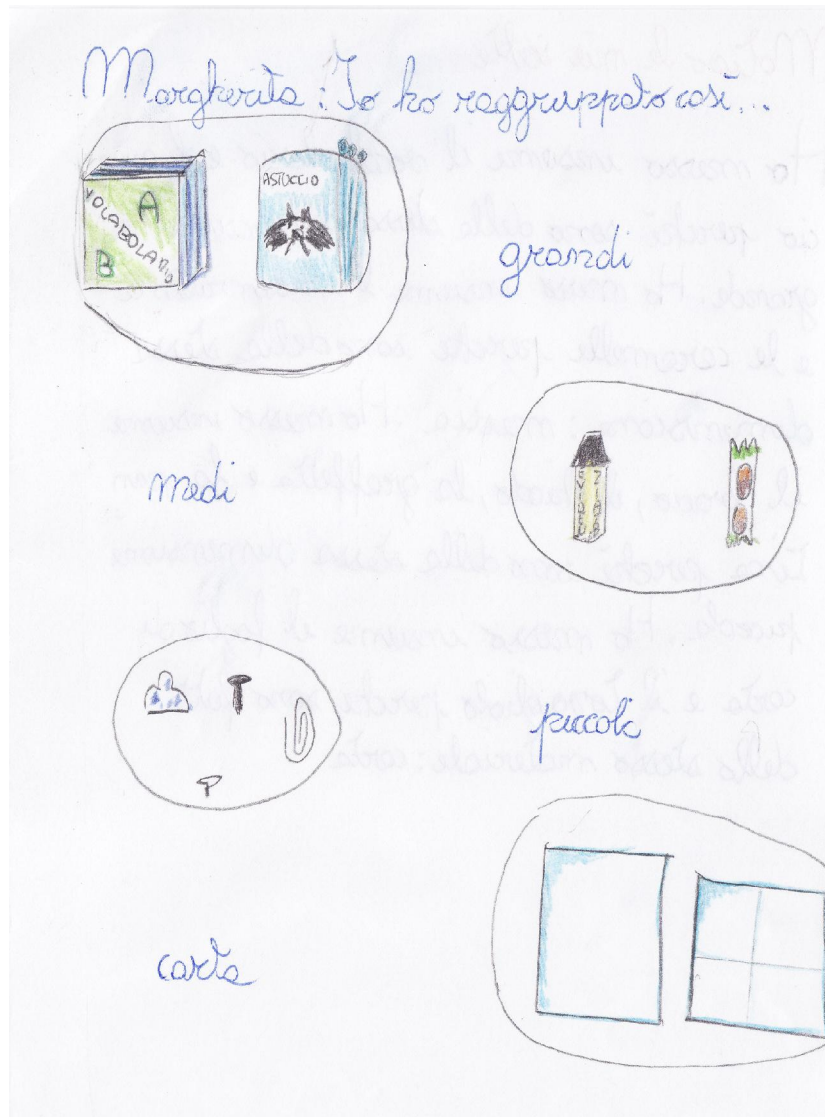 Margherita: Io ho raggruppato così...
A
VOCABOLARIO
B
ASTUCCIO
grandi
medi
piccoli
carta